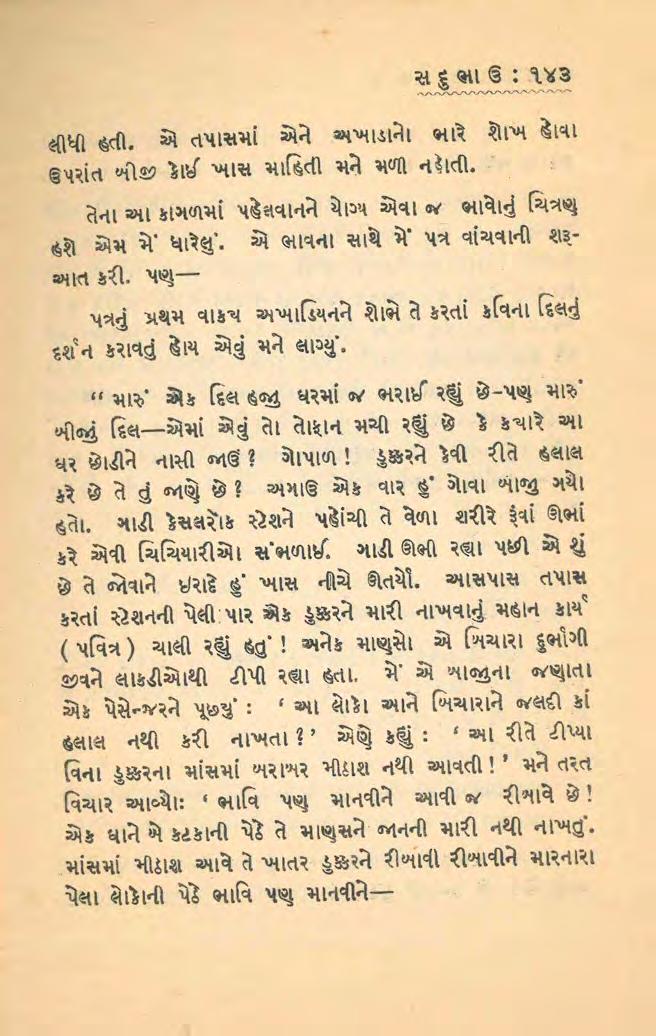 સદુભાઉ : ૧૪૩
લીધી હતી. એ તપાસમાં એને અખાડાનો ભારે શોખ હોવા
ઉપરાંત બીજી કોઈ ખાસ માહિતી મને મળી નહોતી.
તેના આ કાગળમાં પહેલવાનને યોગ્ય એવા જ ભાવોનું ચિત્રણ
હશે એમ મેં ધારેલું. એ ભાવના સાથે મેં પત્ર વાંચવાની શરૂ-
આત કરી. પણ—
પત્રનું પ્રથમ વાક્ય અખાડિયનને શોભે તે કરતાં કવિના દિલનું
દર્શન કરાવતું હોય એવું મને લાગ્યું.
“ મારું એક દિલ હજુ ઘરમાં જ ભરાઈ રહ્યું છે-પણ મારું
બીજું દિલ—એમાં એવું તો તોફાન મચી રહ્યું છે કે ક્યારે આ
ઘર છોડીને નાસી જાઉં ? ગોપાળ ! ડુક્કરને કેવી રીતે હલાલ
કરે છે તે તું જાણે છે ? અગાઉ એક વાર હું ગોવા બાજુ ગયો
હતો. ગાડી કેસલરોક સ્ટેશને પહોંચી તે વેળા શરીરે રૂંવાં ઊભાં
કરે એવી ચિચિયારીઓ સંભળાઈ. ગાડી ઊભી રહ્યા પછી એ શું
છે તે જોવાને ઇરાદે હું ખાસ નીચે ઊતર્યો. આસપાસ તપાસ
કરતાં સ્ટેશનની પેલી પાર એક ડુક્કરને મારી નાખવાનું મહાન કાર્ય
( પવિત્ર ) ચાલી રહ્યું હતું ! અનેક માણસો એ બિચારા દુર્ભાગી
જીવને લાકડીઓથી ટીપી રહ્યા હતા. મેં એ બાજુના જણાતા
એક પેસેન્જરને પૂછ્યું : ‘ આ લોકો આને બિચારાને જલદી કાં
હલાલ નથી કરી નાખતા ? ’ એણે કહ્યું : ‘ આ રીતે ટીપ્યા
વિના ડુક્કરના માંસમાં બરાબર મીઠાશ નથી આવતી ! ’ મને તરત
વિચાર આવ્યોઃ ‘ ભાવિ પણ માનવીને આવી જ રીબાવે છે !
એક ઘાને બે કટકાની પેઠે તે માણસને જાનની મારી નથી નાખતું.
માંસમાં મીઠાશ આવે તે ખાતર ડુક્કરને રીબાવી રીબાવીને મારનારા
પેલા લોકોની પેઠે ભાવિ પણ માનવીને—